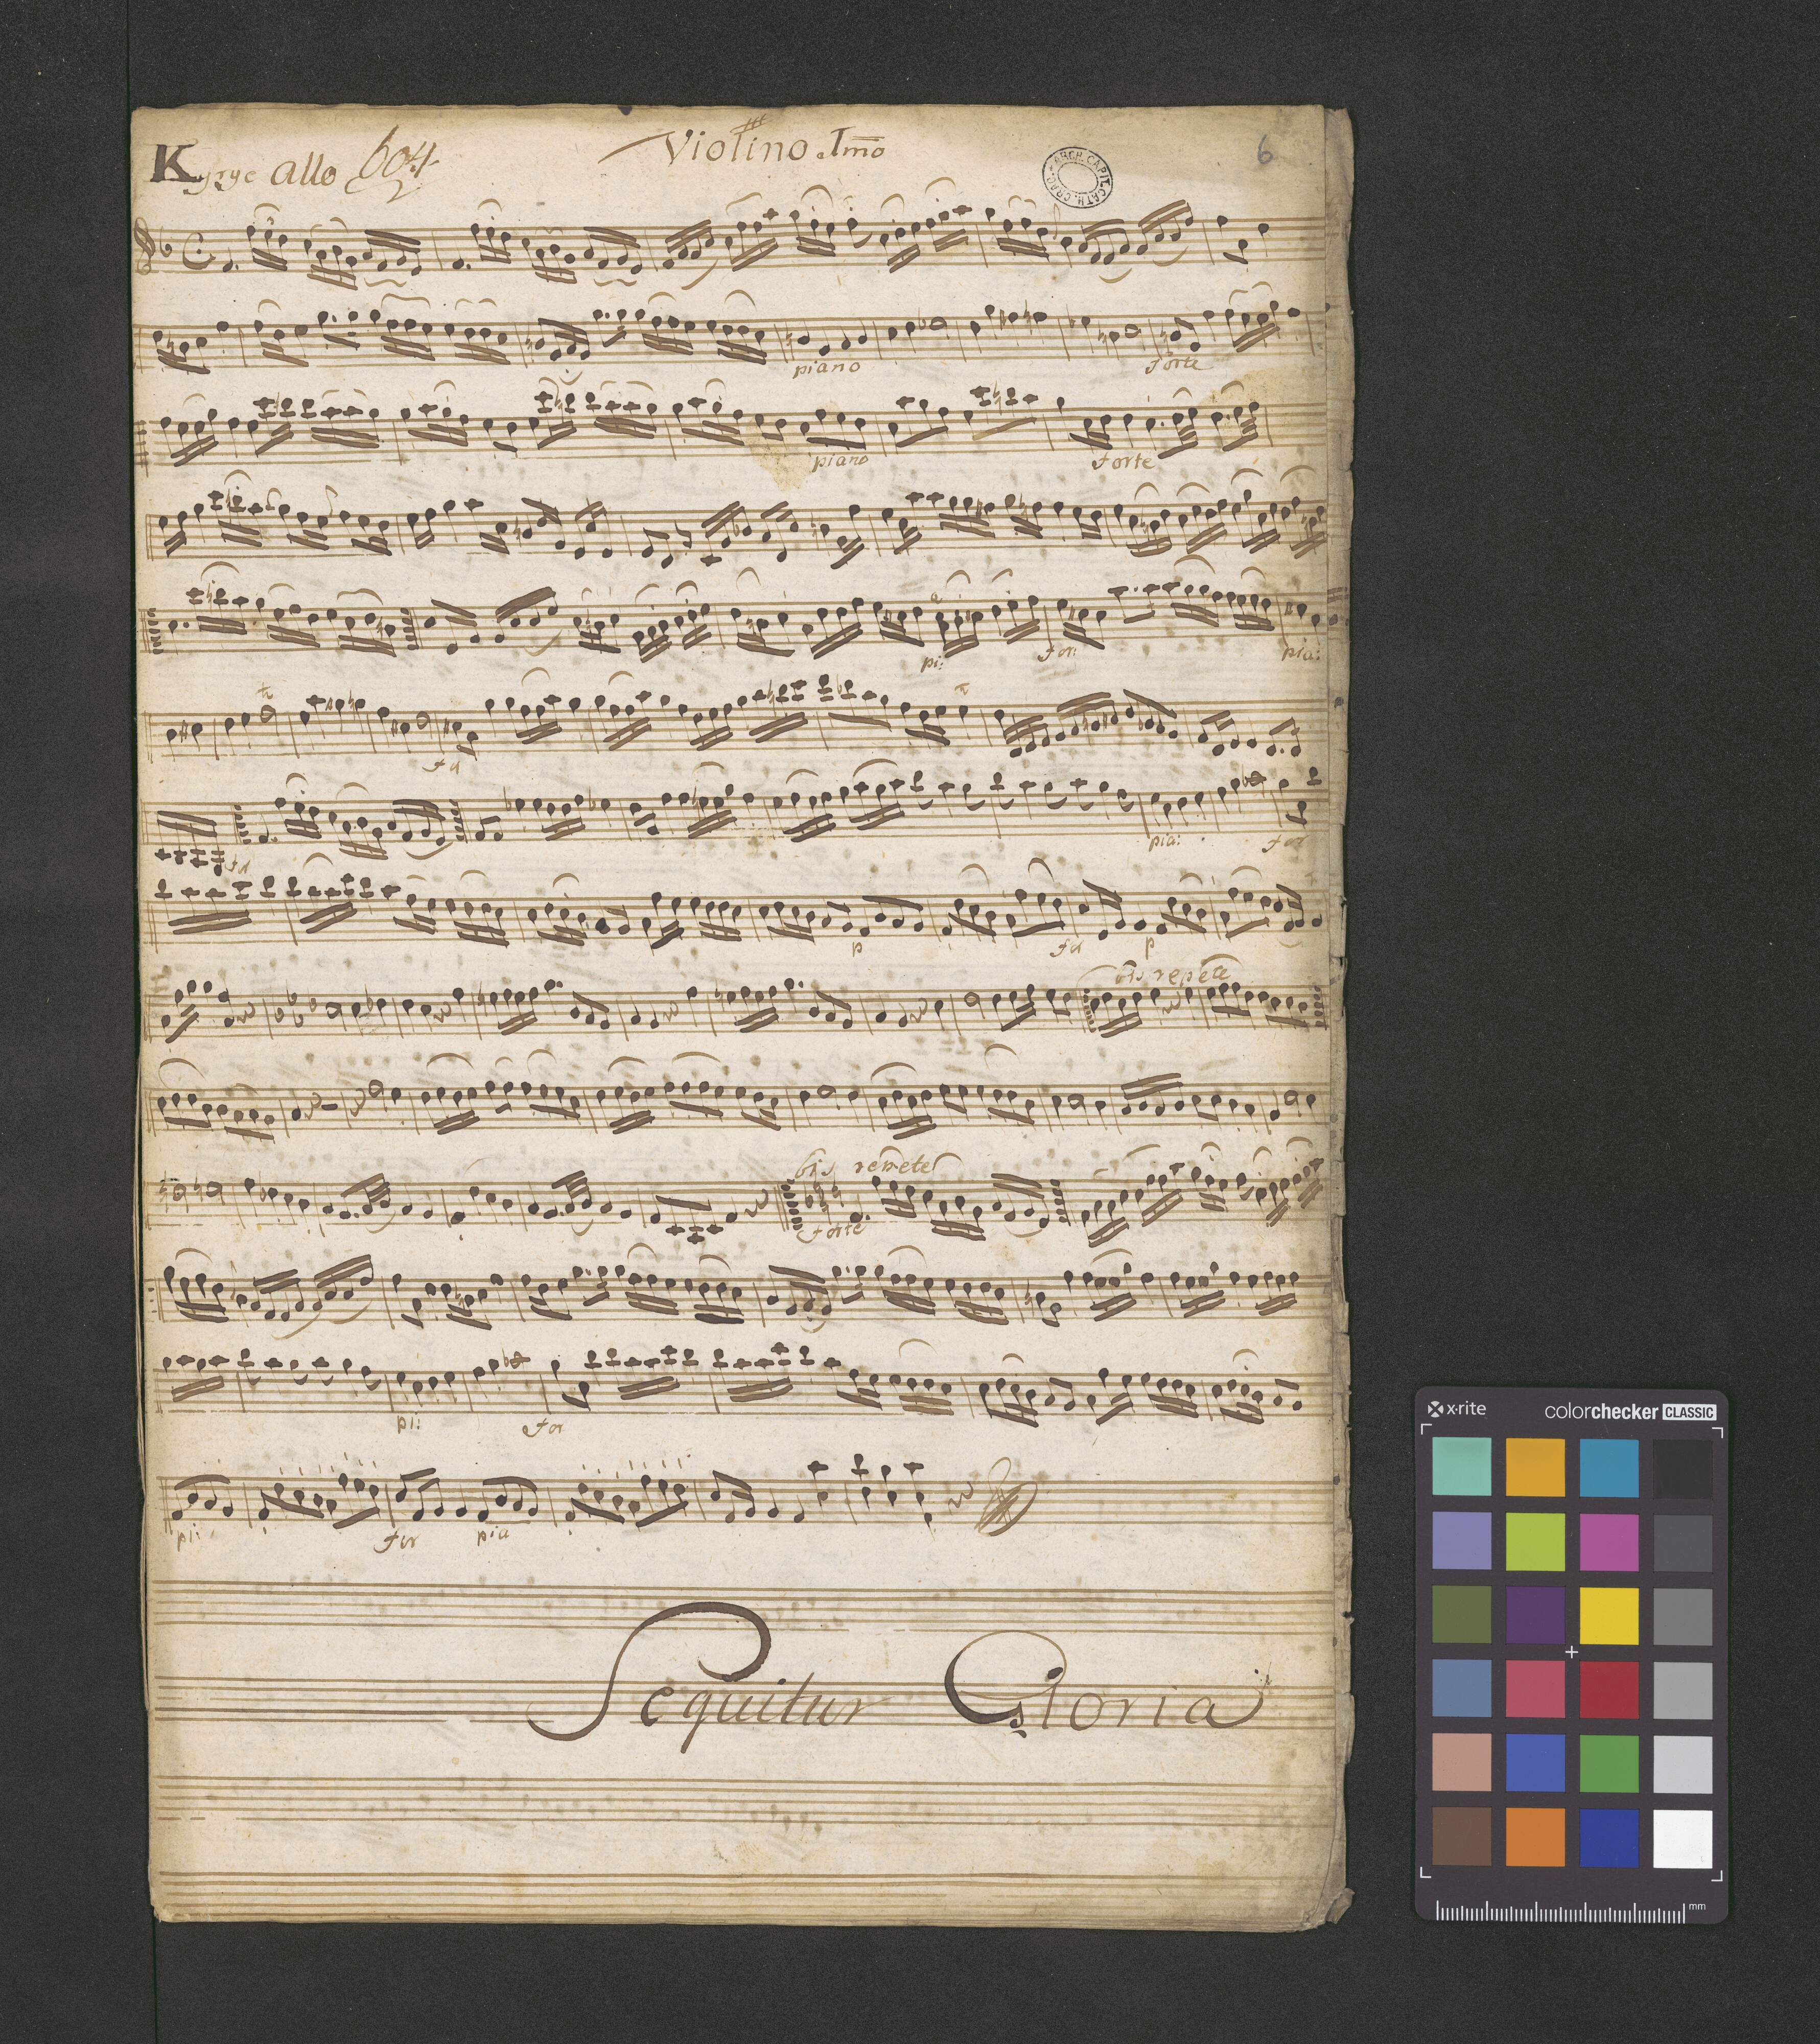 Violino Imo
6
Kyrye allo 604
ARCH. CAPIT. CATH. CRAC.
piano Forte
piano Forte
pi: for: pia:
for
for pia: for
p for p
bis repete
bis repete
forte
pi: for
pi: for pia
Sequitur Gloria
x-rite colorchecker CLASSIC
mm